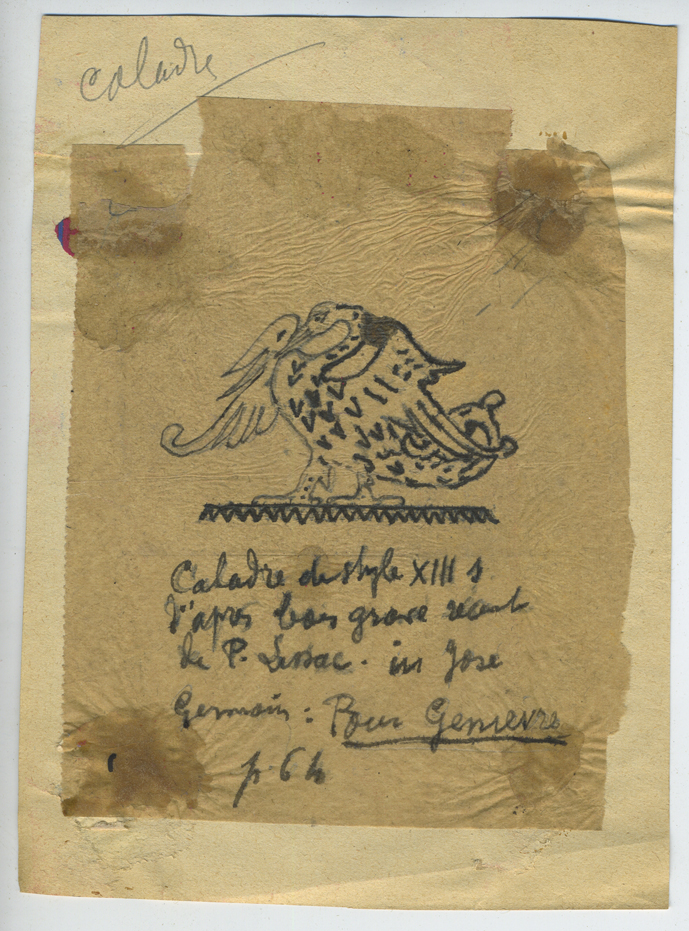 Caladre
Caladre de style XIII s
d'apres bois gravé récent
de P. in José
Germain : Pour Genièvre
p. 6